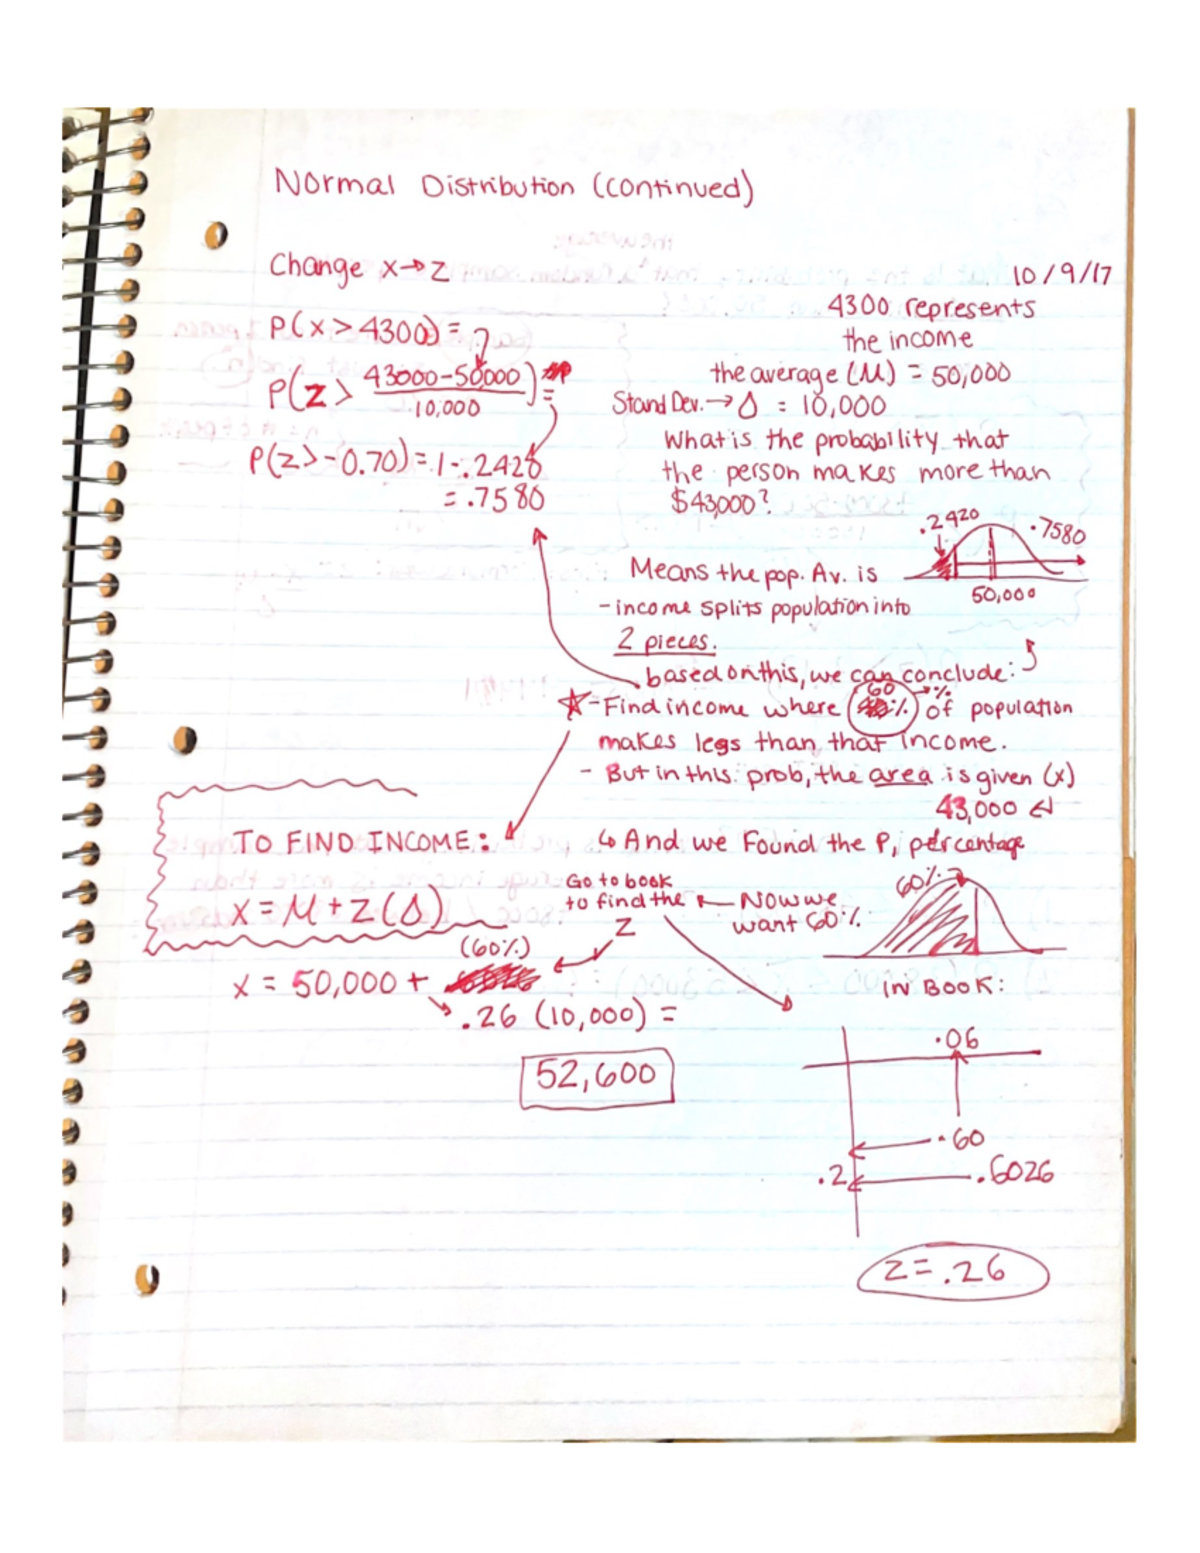 Normal Distribution (continued)
Change x→z
10/9/17
P(x > 4300) = ?
P(z > 43000-50000 / 10,000) =
P(z > -0.70) = 1-.2420
= .7580
4300 represents
the income
the average (M) = 50,000
Stand Dev. → Δ = 10,000
What is the probability that
the person makes more than
$43,000?
.2420
.7580
50,000
Means the pop. Av. is
- income splits population into
2 pieces.
based on this, we can conclude:
60 → %
- Find income where % of population
makes less than that income.
- But in this prob, the area is given (x)
43,000
↳ And we Found the P, percentage
TO FIND INCOME:
x = M + Z (Δ)
Go to book
to find the ← Now we
Z
want 60%.
60%
(60%)
x = 50,000 +
.26 (10,000) =
52,600
IN BOOK:
.06
.60
.2
.6026
z = .26